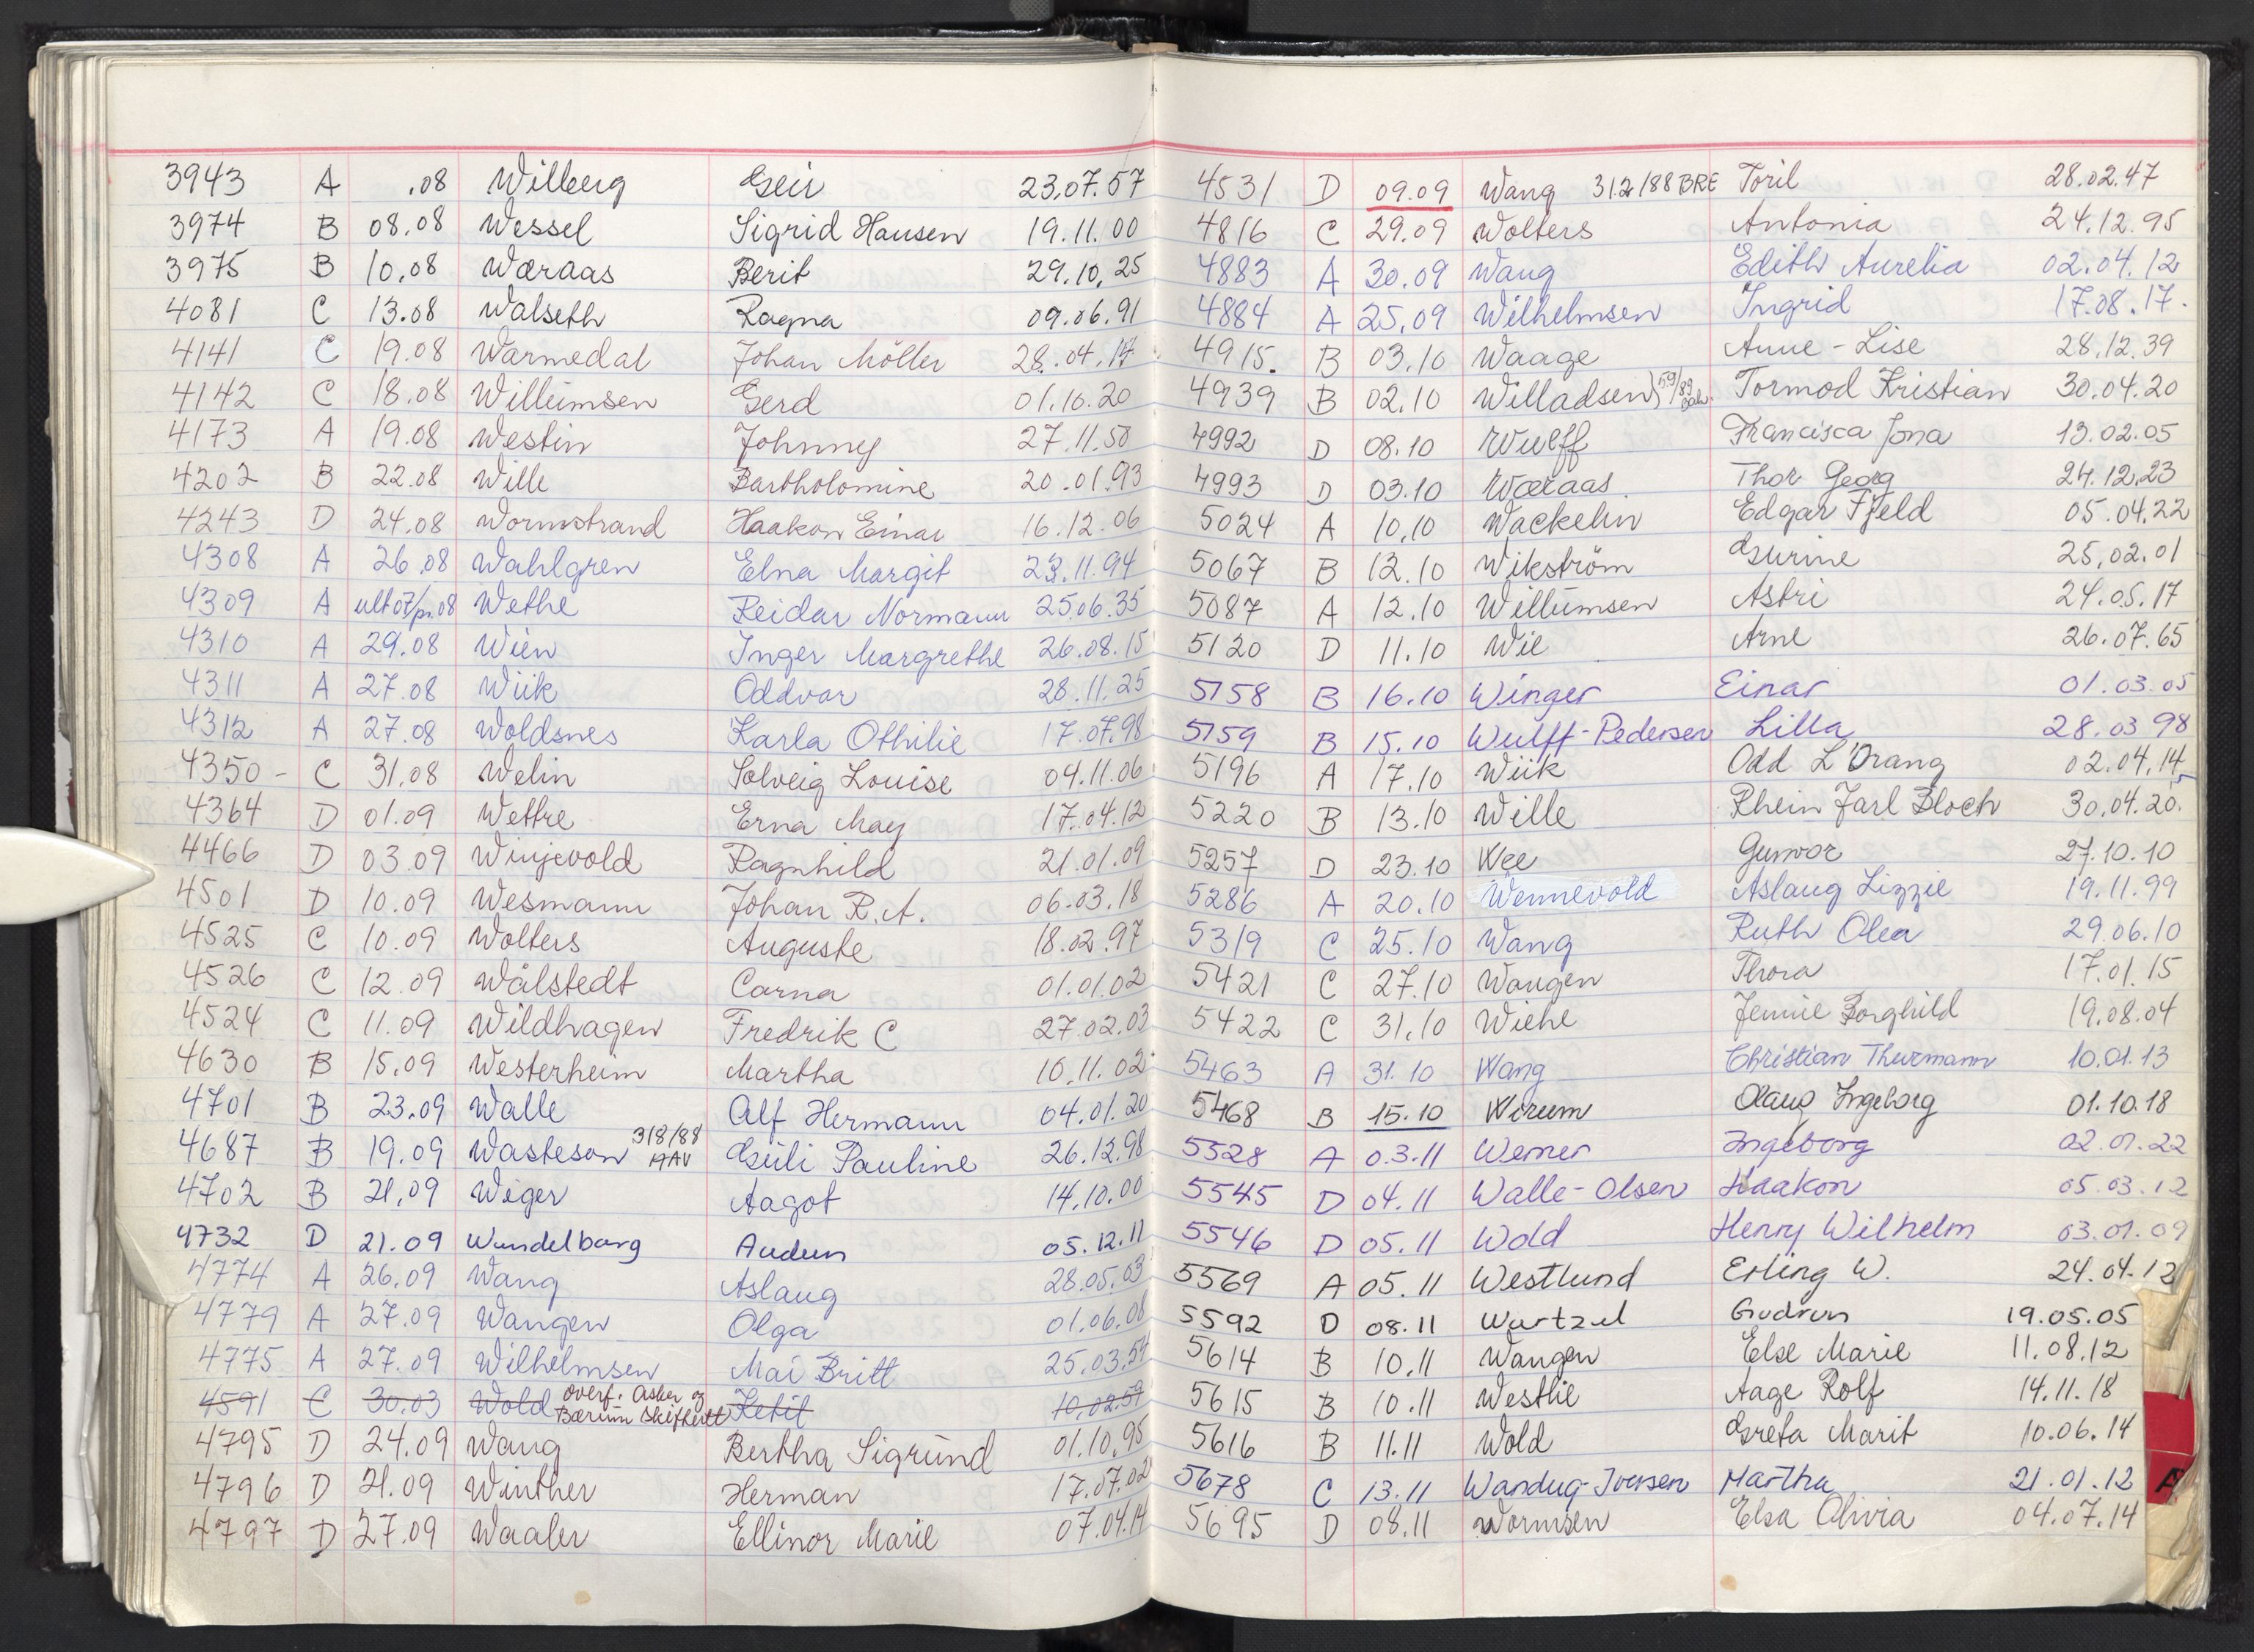 3943 A .08 Wilberg Geir 23.07.57
3974 B 08.08 Wessel Sigrid Hansen 19.11.00
3975 B 10.08 Wæraas Berit 29.10.25
4081 C 13.08 Walseth Ragna 09.06.91
4141 C 19.08 Warmedal Johan Möller 28.04.14
4142 C 18.08 Willumsen Gerd 01.10.20
4173 A 19.08 Westin Johnny 27.11.50
4202 B 22.08 Wille Bartholomine 20.01.93
4243 D 24.08 Wormstrand Haakon Einar 16.12.06
4308 A 26.08 Wahlgren Elna Margit 23.11.94
4309 A ult07/pr.08 Wethe Reidar Normann 25.06.35
4310 A 29.08 Wien Inger Margrethe 26.08.15
4311 A 27.08 Wiik Oddvar 28.11.25
4312 A 27.08 Woldsnes Karla Othilie 17.07.98
4350 - C 31.08 Welin Solveig Louise 04.11.06
4364 D 01.09 Wettre Erna May 17.04.12
4466 D 03.09 Winjevold Ragnhild 21.01.09
4501 D 10.09 Wesmann Johan R.A. 06.03.18
4525 C 10.09 Wolters Auguste 18.02.97
4526 C 12.09 Wålstedt Carna 01.01.02
4524 C 11.09 Wildhagen Fredrik C 27.02.03
4630 B 15.09 Westerheim Martha 10.11.02
4701 B 23.09 Walle Alf Hermann 04.01.20
4687 B 19.09 Wasteson 318/88 AAV Guli Pauline 26.12.98
4702 B 21.09 Wiger Aagot 14.10.00
4732 D 21.09 Wundelborg Audun 05.12.11
4774 A 26.09 Wang Aslaug 28.05.03
4779 A 27.09 Wangen Olga 01.06.08
4775 A 27.09 Wilhelmsen Mai Britt 25.03.54
4591 C 30.03 Wold overf. Asker og Bærum skifterett Ketil 10.02.59
4795 D 24.09 Wang Bertha Sigrund 01.10.95
4796 D 21.09 Winther Herman 17.07.02
4797 D 27.09 Waaler Ellinor Marie 07.04.14
4531 D 09.09 Wang 312/88 BRE Toril 28.02.47
4816 C 29.09 Wolters Antonia 24.12.95
4883 A 30.09 Wang Edith Aurelia 02.04.12
4884 A 25.09 Wilhelmsen Ingrid 17.08.17.
4915. B 03.10 Waage Anne-Lise 28.12.39
4939 B 02.10 Willadsen Tormod Kristian 30.04.20
4992 D 08.10 Wulff Francisca Jona 13.02.05
4993 D 03.10 Wæraas Thor Georg 24.12.23
5024 A 10.10 Wackelin Edgar Fjeld 05.04.22
5067 B 12.10 Wikström Gurine 25.02.01
5087 A 12.10 Willumsen Astri 24.05.17
5120 D 11.10 Wie Arne 26.07.65
5158 B 16.10 Winger Einar 01.03.05
5159 B 15.10 Wulff-Pedersen Lilla 28.03 98
5196 A 17.10 Wiik Odd L'Orang 02.04.14
5220 B 13.10 Wille Rhein Jarl Bloch 30.04.20.
5257 D 23.10 Wee Gunvor 27.10.10
5286 A 20.10 Wennevold Aslaug Lizzie 19.11.99
5319 C 25.10 Wang Ruth Olea 29.06.10
5421 C 27.10 Wangen Thora 17.01.15
5422 C 31.10 Wiehe Jennie Borghild 19.08.04
5463 A 31.10 Wang Christian Thurmann 10.01.13
5468 B 15.10 Wirum Olaug Ingeborg 01.10.18
5528 A 03.11 Werner Ingeborg 02.01.22
5545 D 04.11 Walle-Olsen Haakon 05.03.12
5546 D 05.11 Wold Henry Wilhelm 03.01.09
5569 A 05.11 Westlund Erling W. 24.04.12
5592 D 08.11 Wurtzel Gudrun 19.05.05
5614 B 10.11 Wangen Else Marie 11.08.12
5615 B 10.11 Westlie Aage Rolf 14.11.18
5616 B 11.11 Wold Greta Marit 10.06.14
5678 C 13.11 Wandug-Iversen Martha 21.01.12
5695 D 08.11 Wormsen Elsa Olivia 04.07.14